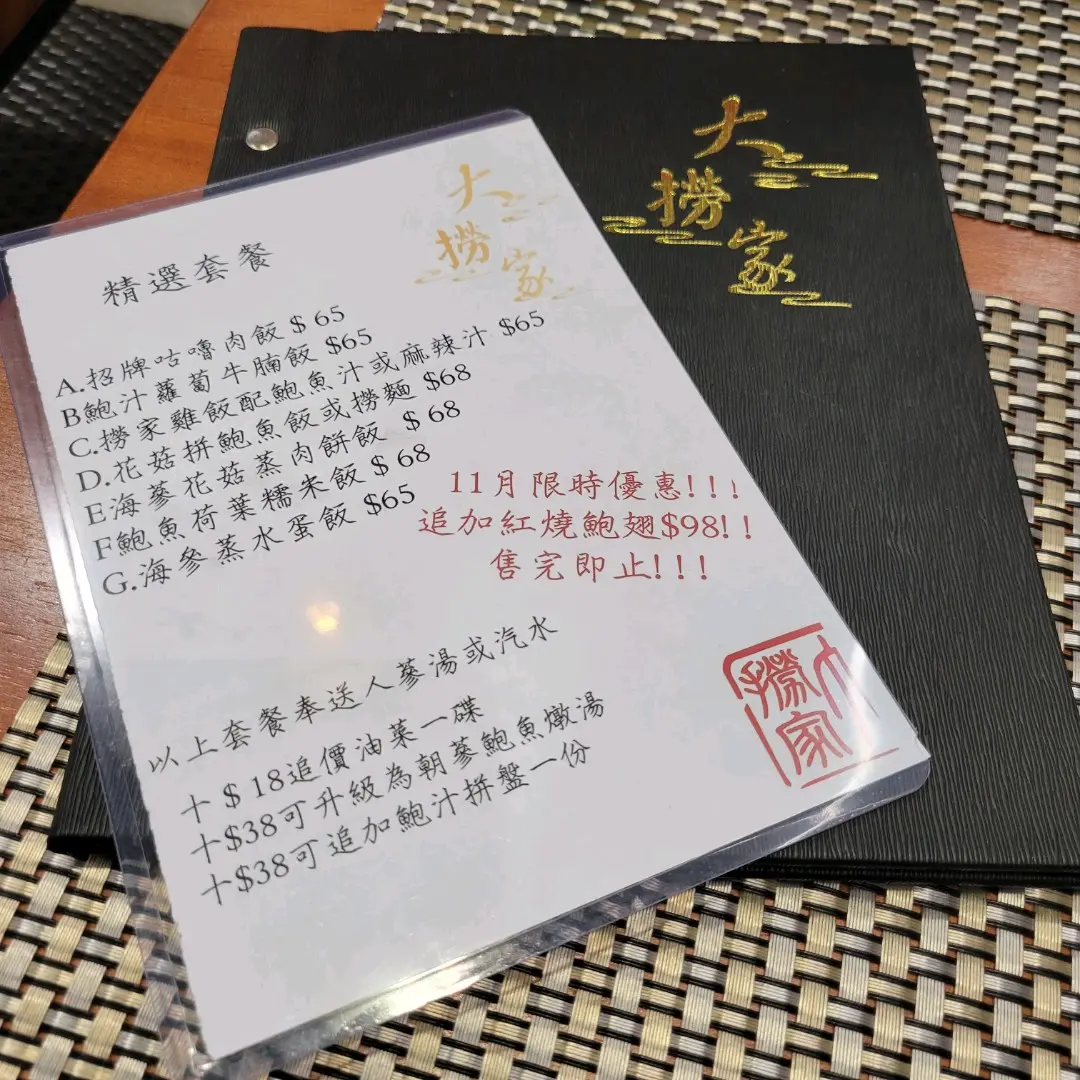 大
撈
家
大
撈
家
精選套餐
A.招牌咕嚕肉飯 $ 65
B鮑汁蘿蔔牛腩飯 $65
C.撈家雞飯配鮑魚汁或麻辣汁 $65
D.花菇拼鮑魚飯或撈麵 $68
E海蔘花菇蒸肉餅飯 $ 68
F鮑魚荷葉糯米飯 $ 68
G.海參蒸水蛋飯 $65
11月限時優惠!!!
追加紅燒鮑翅$98!!
售完即止!!!
以上套餐奉送人蔘湯或汽水
十 $ 18追價油菜一碟
十$38可升級為朝蔘鮑魚燉湯
十$38可追加鮑汁拼盤一份
大撈家